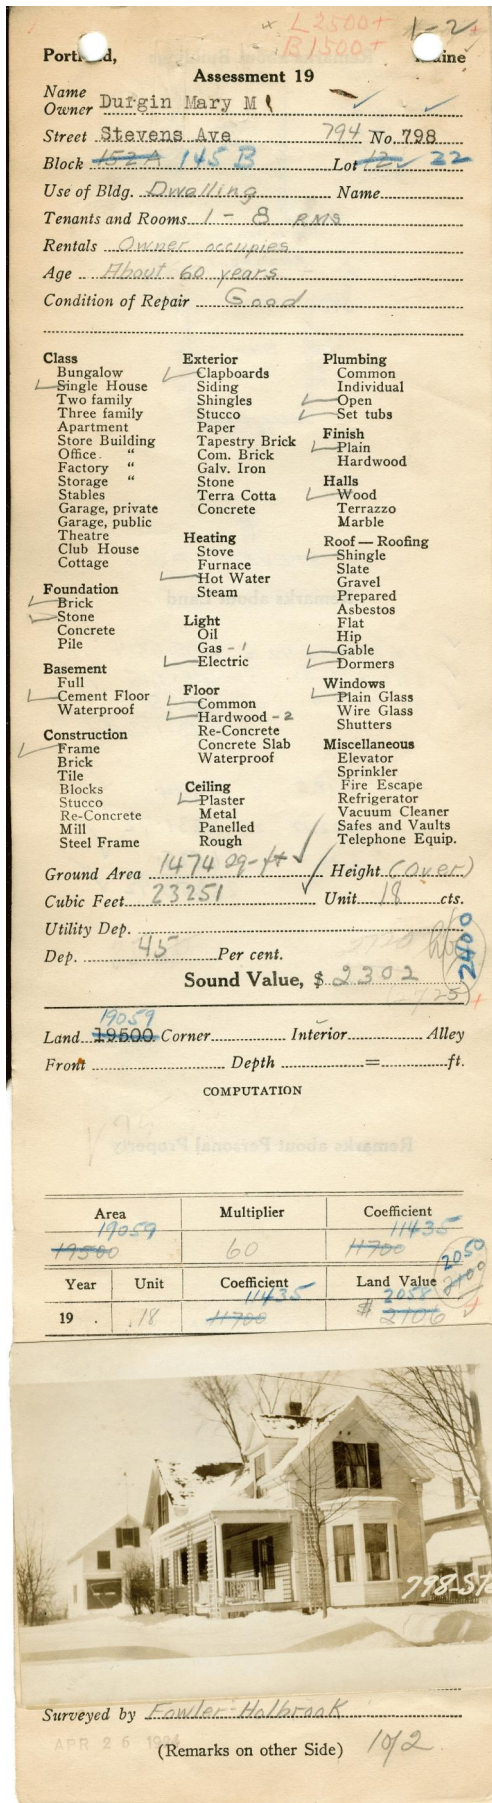 L 2500+ 1-2
B 1500+
Portland, Maine
Assessment 19
Name
Owner Durgin Mary M
Street Stevens Ave 794 No. 798
Block 152A 145 B Lot 12 22
Use of Bldg. Dwelling Name
Tenants and Rooms 1 - 8 RMS
Rentals Owner occupies
Age About 60 years
Condition of Repair Good
Class
Bungalow
Single House
Two family
Three family
Apartment
Store Building
Office "
Factory "
Storage "
Stables
Garage, private
Garage, public
Theatre
Club House
Cottage
Foundation
Brick
Stone
Concrete
Pile
Basement
Full
Cement Floor
Waterproof
Construction
Frame
Brick
Tile
Blocks
Stucco
Re-Concrete
Mill
Steel Frame
Exterior
Clapboards
Siding
Shingles
Stucco
Paper
Tapestry Brick
Com. Brick
Galv. Iron
Stone
Terra Cotta
Concrete
Heating
Stove
Furnace
Hot Water
Steam
Light
Oil
Gas - 1
Electric
Floor
Common
Hardwood - 2
Re-Concrete
Concrete Slab
Waterproof
Ceiling
Plaster
Metal
Panelled
Rough
Plumbing
Common
Individual
Open
Set tubs
Finish
Plain
Hardwood
Halls
Wood
Terrazzo
Marble
Roof — Roofing
Shingle
Slate
Gravel
Prepared
Asbestos
Flat
Hip
Gable
Dormers
Windows
Plain Glass
Wire Glass
Shutters
Miscellaneous
Elevator
Sprinkler
Fire Escape
Refrigerator
Vacuum Cleaner
Safes and Vaults
Telephone Equip.
Ground Area 1474 sq-ft Height (Over)
Cubic Feet 23251 Unit 18 cts.
Utility Dep.
Dep. 45 Per cent. 2400
Sound Value, $ 2302
19059
Land 19500 Corner Interior Alley
Front Depth = ft.
COMPUTATION
Area Multiplier Coefficient
19059 11435
19500 60 11700
Year Unit Coefficient Land Value 2050 2100
11435 2058
19 . .18 11700 $ 2106
798-St
Surveyed by Fowler-Holbrook
APR 26
(Remarks on other Side) 10/2